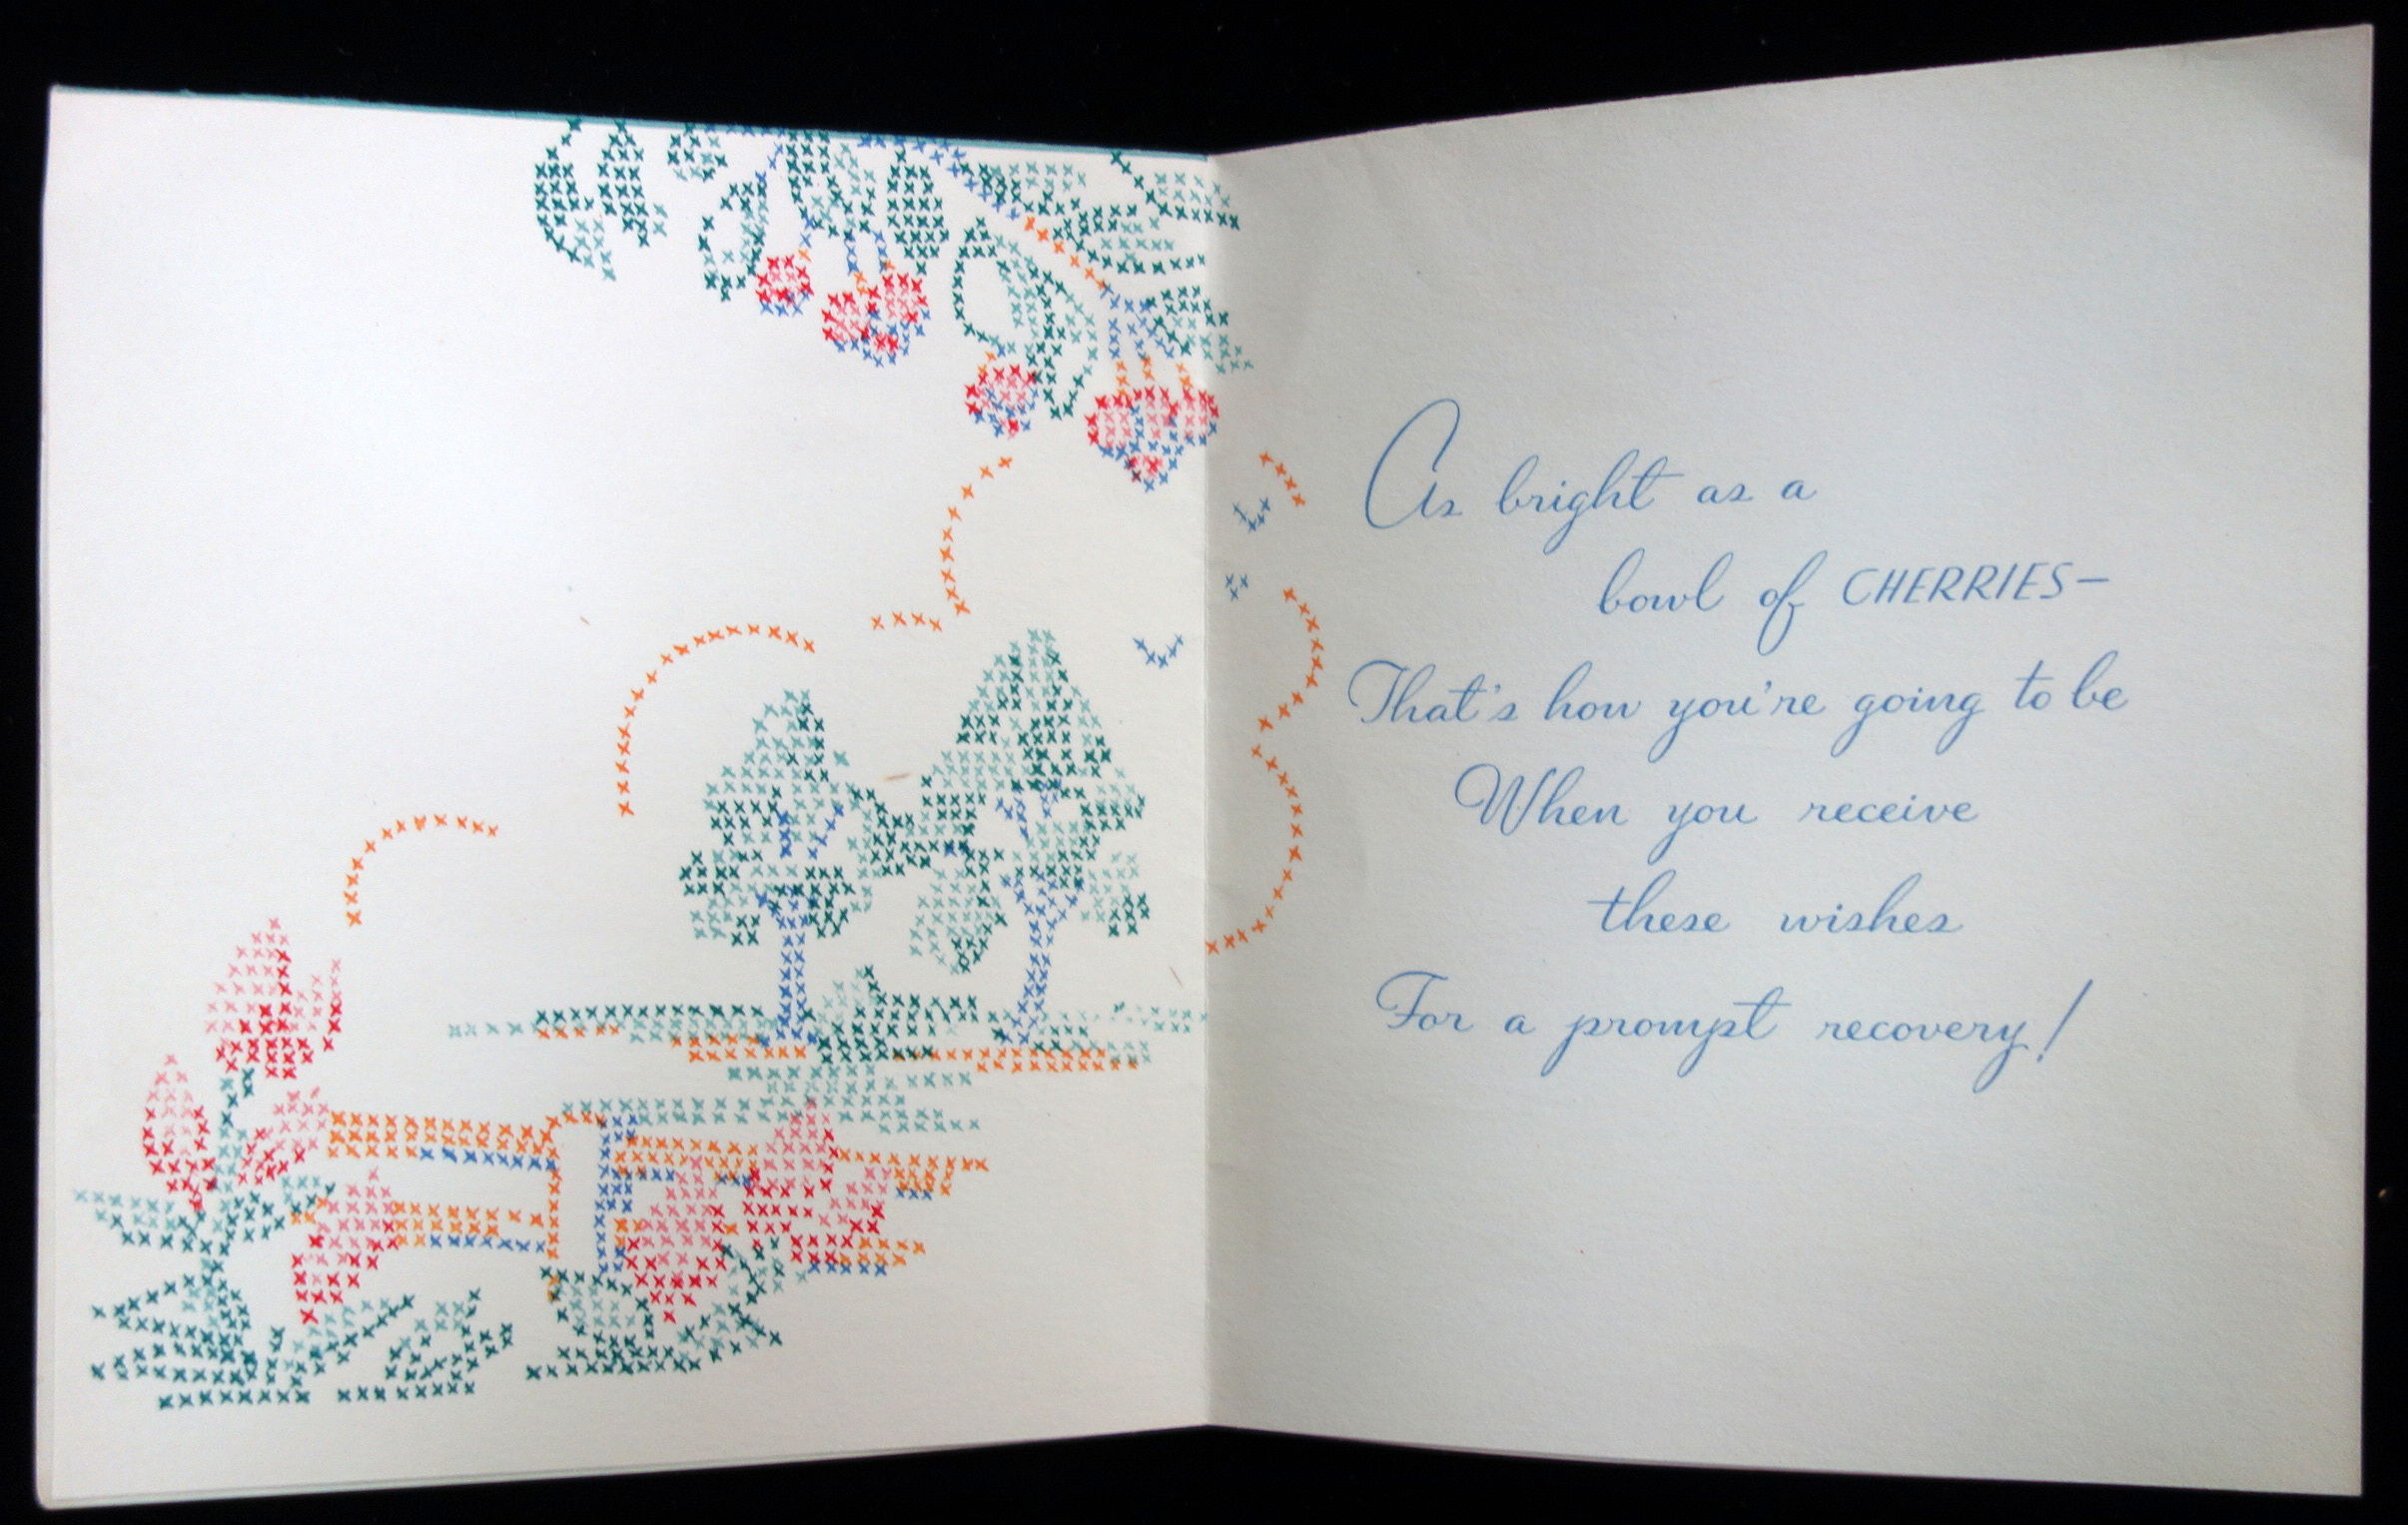 As bright as a
bowl of CHERRIES—
That's how you're going to be
When you receive
these wishes
For a prompt recovery!